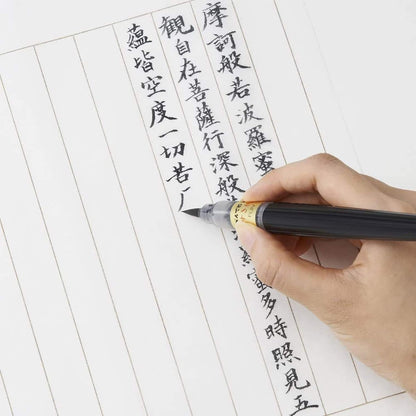 摩訶般若波羅蜜
観自在菩薩行深般 蜜多時照見五
蘊皆空度一切苦厂